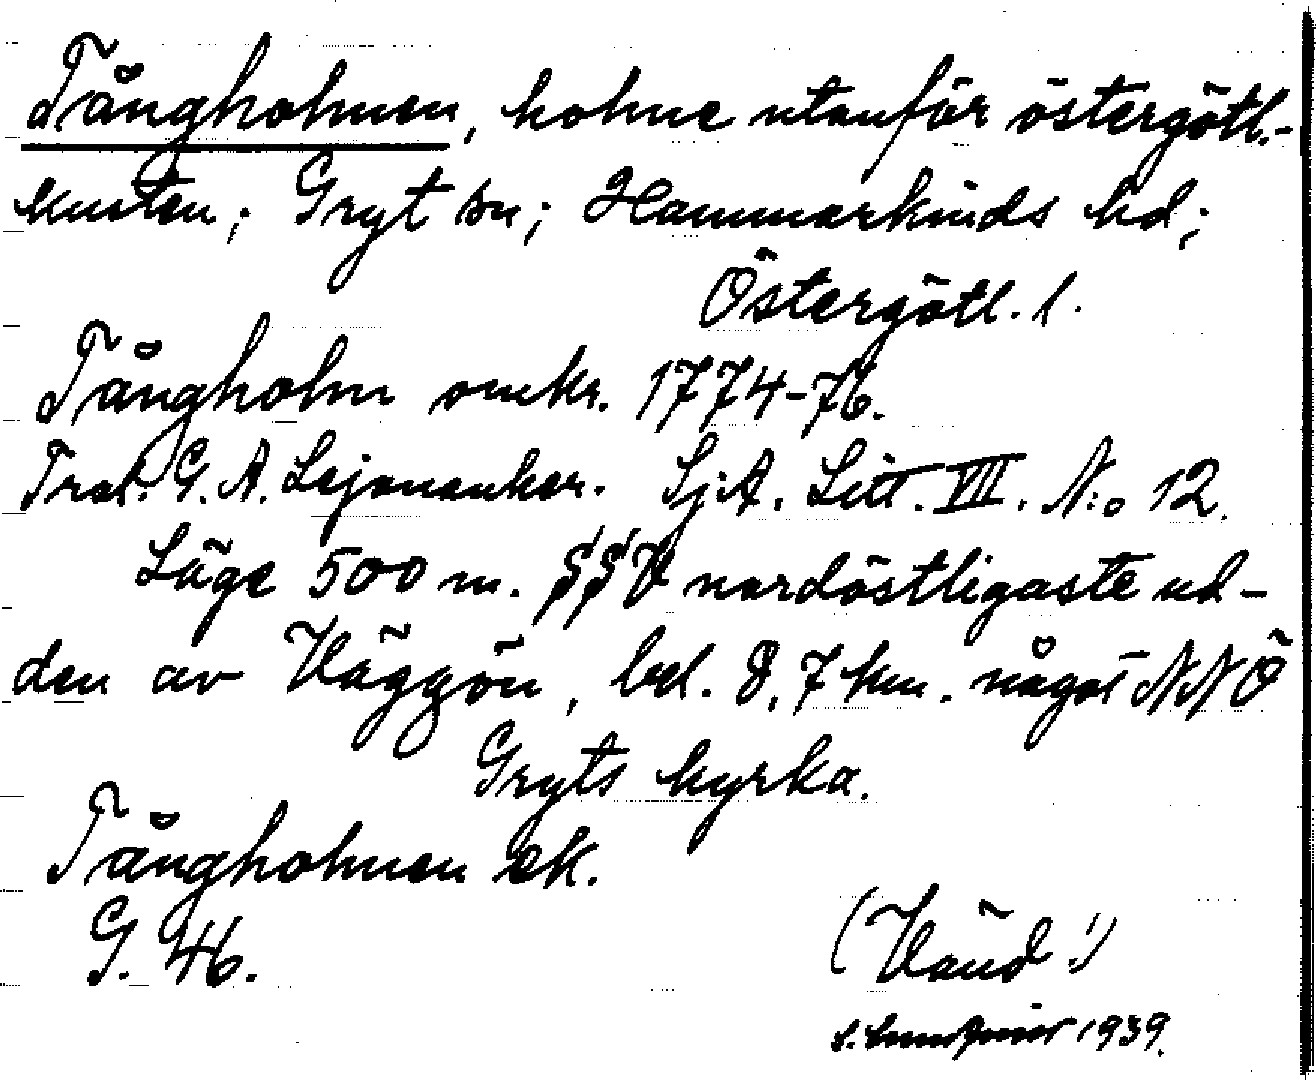 Tångholmen, holme utanför östergötl.-
kusten; Gryt sn; Hammarkinds hd;
Östergötl. l.
Tångholm omkr. 1774-76.
Trol. G. A. Lejonanker. SjA. Litt. VII. N:o 12.
Läge 500 m. SSV nordöstligaste ud-
den av Väggön, bel. 8,7 km. något NNÖ
Gryts kyrka.
Tångholmen ek.
G. 46.
(Vänd!)
1939.